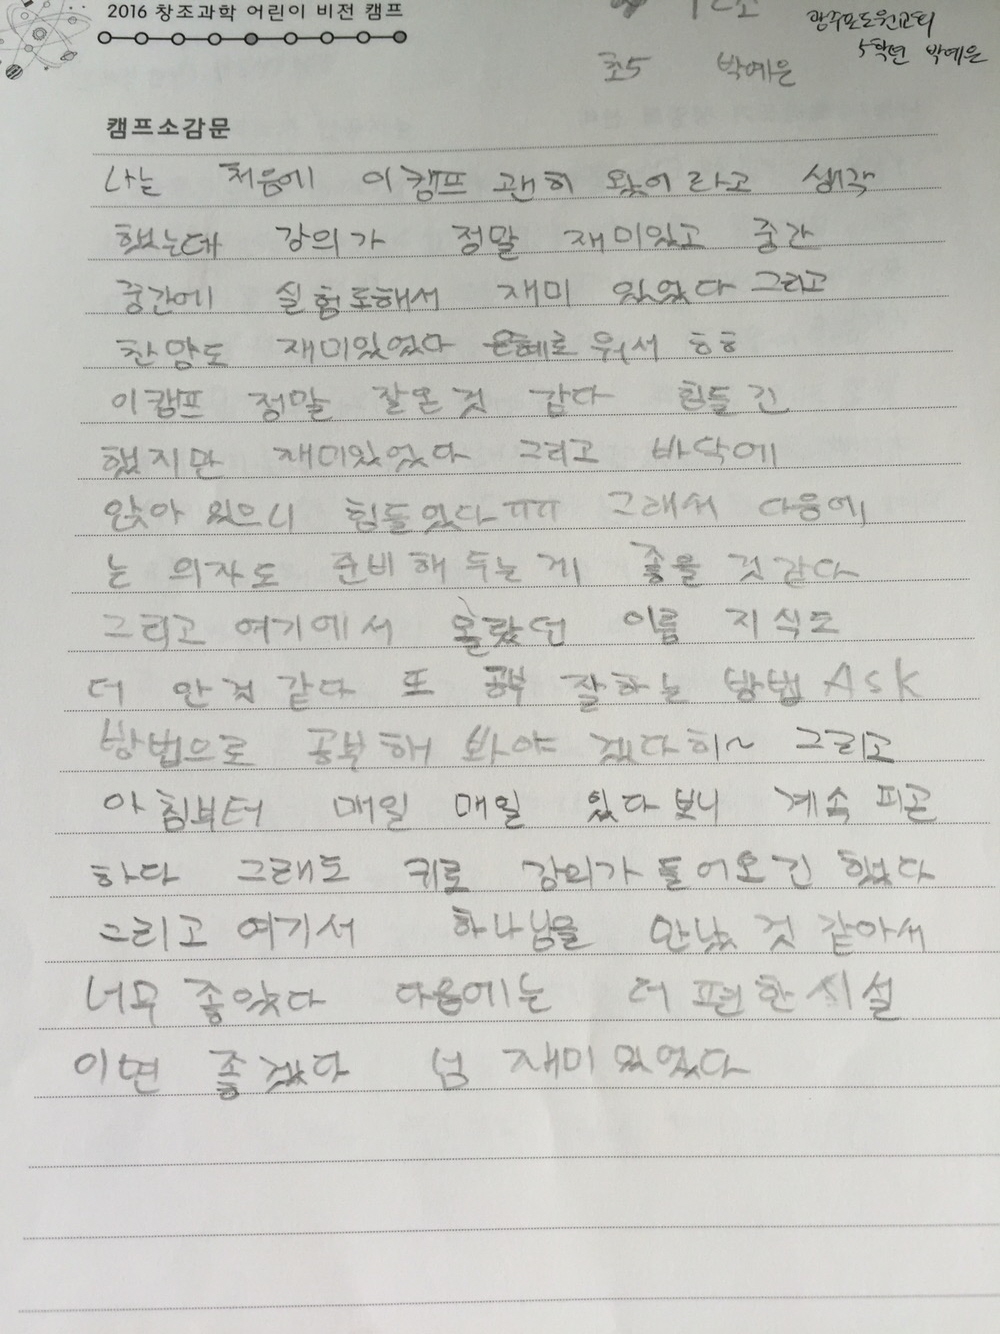 2016 창조과학 어린이 비전 캠프
광주포도원교회
5학년 박예은
12조
초5 박예은
캠프소감문
나는 처음에 이캠프 괜히 왔어라고 생각
했는데 강의가 정말 재미있고 중간
중간에 실험도해서 재미 있었다 그리고
찬양도 재미있었다 은혜로 워서 ㅎㅎ
이캠프 정말 잘온것 감다 힘들긴
했지만 재미있었다 그리고 바닥에
앉아 있으니 힘들었다 ㅠㅠ 그래서 다음에
는 의자도 준비해 두는게 좋을 것같다
그리고 여기에서 몰랐던 이름 지식도
더 안것 같다 또 공부 잘하는 방법 Ask
방법으로 공부해 봐야 겠다히~ 그리고
아침부터 매일 매일 있다보니 계속 피곤
하다 그래도 귀로 강의가 들어오긴 했다
그리고 여기서 하나님을 만났 것 같아서
너무 좋았다 다음에는 더 편한 시설
이면 좋겠다 넘 재미있었다